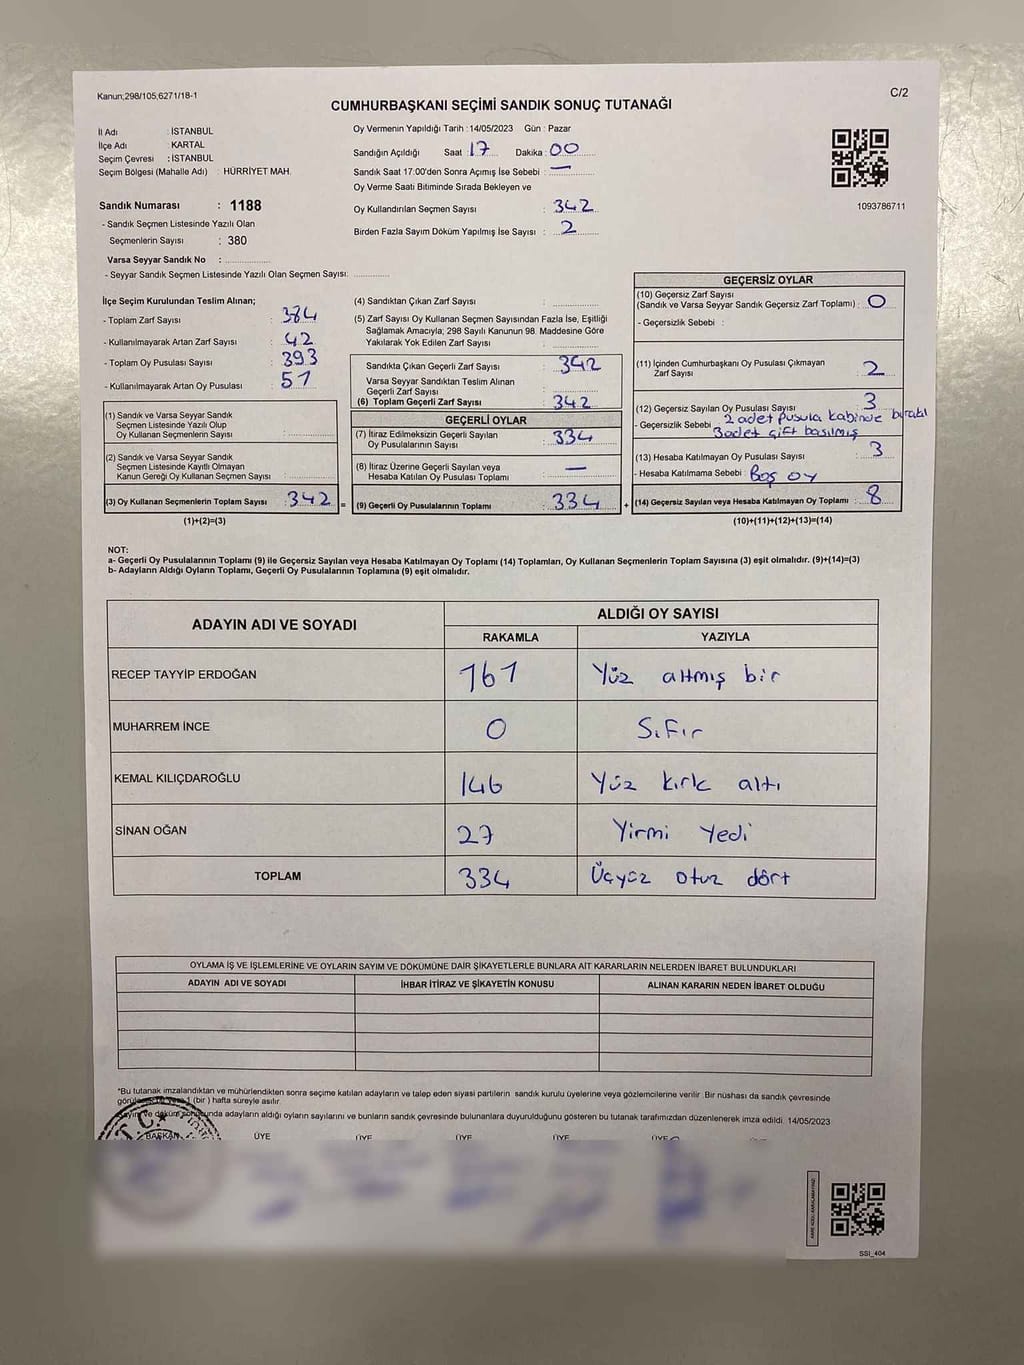 Kanun;298/105;6271/18-1
C/2
CUMHURBAŞKANI SEÇİMİ SANDIK SONUÇ TUTANAĞI
İl Adı : İSTANBUL
İlçe Adı : KARTAL
Seçim Çevresi : İSTANBUL
Seçim Bölgesi (Mahalle Adı) : HÜRRİYET MAH.
Sandık Numarası : 1188
- Sandık Seçmen Listesinde Yazılı Olan
Seçmenlerin Sayısı : 380
Varsa Seyyar Sandık No :
- Seyyar Sandık Seçmen Listesinde Yazılı Olan Seçmen Sayısı:
Oy Vermenin Yapıldığı Tarih : 14/05/2023 Gün : Pazar
Sandığın Açıldığı Saat : 17 Dakika : 00
Sandık Saat 17:00'den Sonra Açımış İse Sebebi : —
Oy Verme Saati Bitiminde Sırada Bekleyen ve
Oy Kullandırılan Seçmen Sayısı : 342
Birden Fazla Sayım Döküm Yapılmış İse Sayısı : 2
1093786711
İlçe Seçim Kurulundan Teslim Alınan;
- Toplam Zarf Sayısı : 384
- Kullanılmayarak Artan Zarf Sayısı : 42
- Toplam Oy Pusulası Sayısı : 393
- Kullanılmayarak Artan Oy Pusulası : 51
(1) Sandık ve Varsa Seyyar Sandık
Seçmen Listesinde Yazılı Olup
Oy Kullanan Seçmenlerin Sayısı :
(2) Sandık ve Varsa Seyyar Sandık
Seçmen Listesinde Kayıtlı Olmayan
Kanun Gereği Oy Kullanan Seçmen Sayısı :
(3) Oy Kullanan Seçmenlerin Toplam Sayısı : 342 =
(1)+(2)=(3)
(4) Sandıktan Çıkan Zarf Sayısı :
(5) Zarf Sayısı Oy Kullanan Seçmen Sayısından Fazla İse, Eşitliği
Sağlamak Amacıyla; 298 Sayılı Kanunun 98. Maddesine Göre
Yakılarak Yok Edilen Zarf Sayısı :
Sandıkta Çıkan Geçerli Zarf Sayısı : 342
Varsa Seyyar Sandıktan Teslim Alınan
Geçerli Zarf Sayısı :
(6) Toplam Geçerli Zarf Sayısı : 342
GEÇERLİ OYLAR
(7) İtiraz Edilmeksizin Geçerli Sayılan
Oy Pusulalarının Sayısı : 334
(8) İtiraz Üzerine Geçerli Sayılan veya
Hesaba Katılan Oy Pusulası Toplamı : —
(9) Geçerli Oy Pusulalarının Toplamı : 334 +
GEÇERSİZ OYLAR
(10) Geçersiz Zarf Sayısı
(Sandık ve Varsa Seyyar Sandık Geçersiz Zarf Toplamı) : 0
- Geçersizlik Sebebi :
(11) İçinden Cumhurbaşkanı Oy Pusulası Çıkmayan
Zarf Sayısı : 2
(12) Geçersiz Sayılan Oy Pusulası Sayısı : 3
- Geçersizlik Sebebi : 2 adet pusula kabinde
3 adet çift basılmış
(13) Hesaba Katılmayan Oy Pusulası Sayısı : 3
- Hesaba Katılmama Sebebi : Boş oy
(14) Geçersiz Sayılan veya Hesaba Katılmayan Oy Toplamı : 8
(10)+(11)+(12)+(13)=(14)
NOT:
a- Geçerli Oy Pusulalarının Toplamı (9) ile Geçersiz Sayılan veya Hesaba Katılmayan Oy Toplamı (14) Toplamları, Oy Kullanan Seçmenlerin Toplam Sayısına (3) eşit olmalıdır. (9)+(14)=(3)
b- Adayların Aldığı Oyların Toplamı, Geçerli Oy Pusulalarının Toplamına (9) eşit olmalıdır.
ADAYIN ADI VE SOYADI ALDIĞI OY SAYISI
RAKAMLA YAZIYLA
RECEP TAYYİP ERDOĞAN 161 Yüz altmış bir
MUHARREM İNCE 0 Sıfır
KEMAL KILIÇDAROĞLU 146 Yüz kırk altı
SİNAN OĞAN 27 Yirmi Yedi
TOPLAM 334 Üçyüz otuz dört
OYLAMA İŞ VE İŞLEMLERİNE VE OYLARIN SAYIM VE DÖKÜMÜNE DAİR ŞİKAYETLERLE BUNLARA AİT KARARLARIN NELERDEN İBARET BULUNDUKLARI
ADAYIN ADI VE SOYADI İHBAR İTİRAZ VE ŞİKAYETİN KONUSU ALINAN KARARIN NEDEN İBARET OLDUĞU
*Bu tutanak imzalandıktan ve mühürlendikten sonra seçime katılan adayların ve talep eden siyasi partilerin sandık kurulu üyelerine veya gözlemcilerine verilir. Bir nüshası da sandık çevresinde
1 (bir) hafta süreyle asılır.
adayların aldığı oyların sayılarını ve bunların sandık çevresinde bulunanlara duyurulduğunu gösteren bu tutanak tarafımızdan düzenlenerek imza edildi. 14/05/2023
T.C.
BAŞKAN ÜYE ÜYE ÜYE ÜYE ÜYE
SSI_404